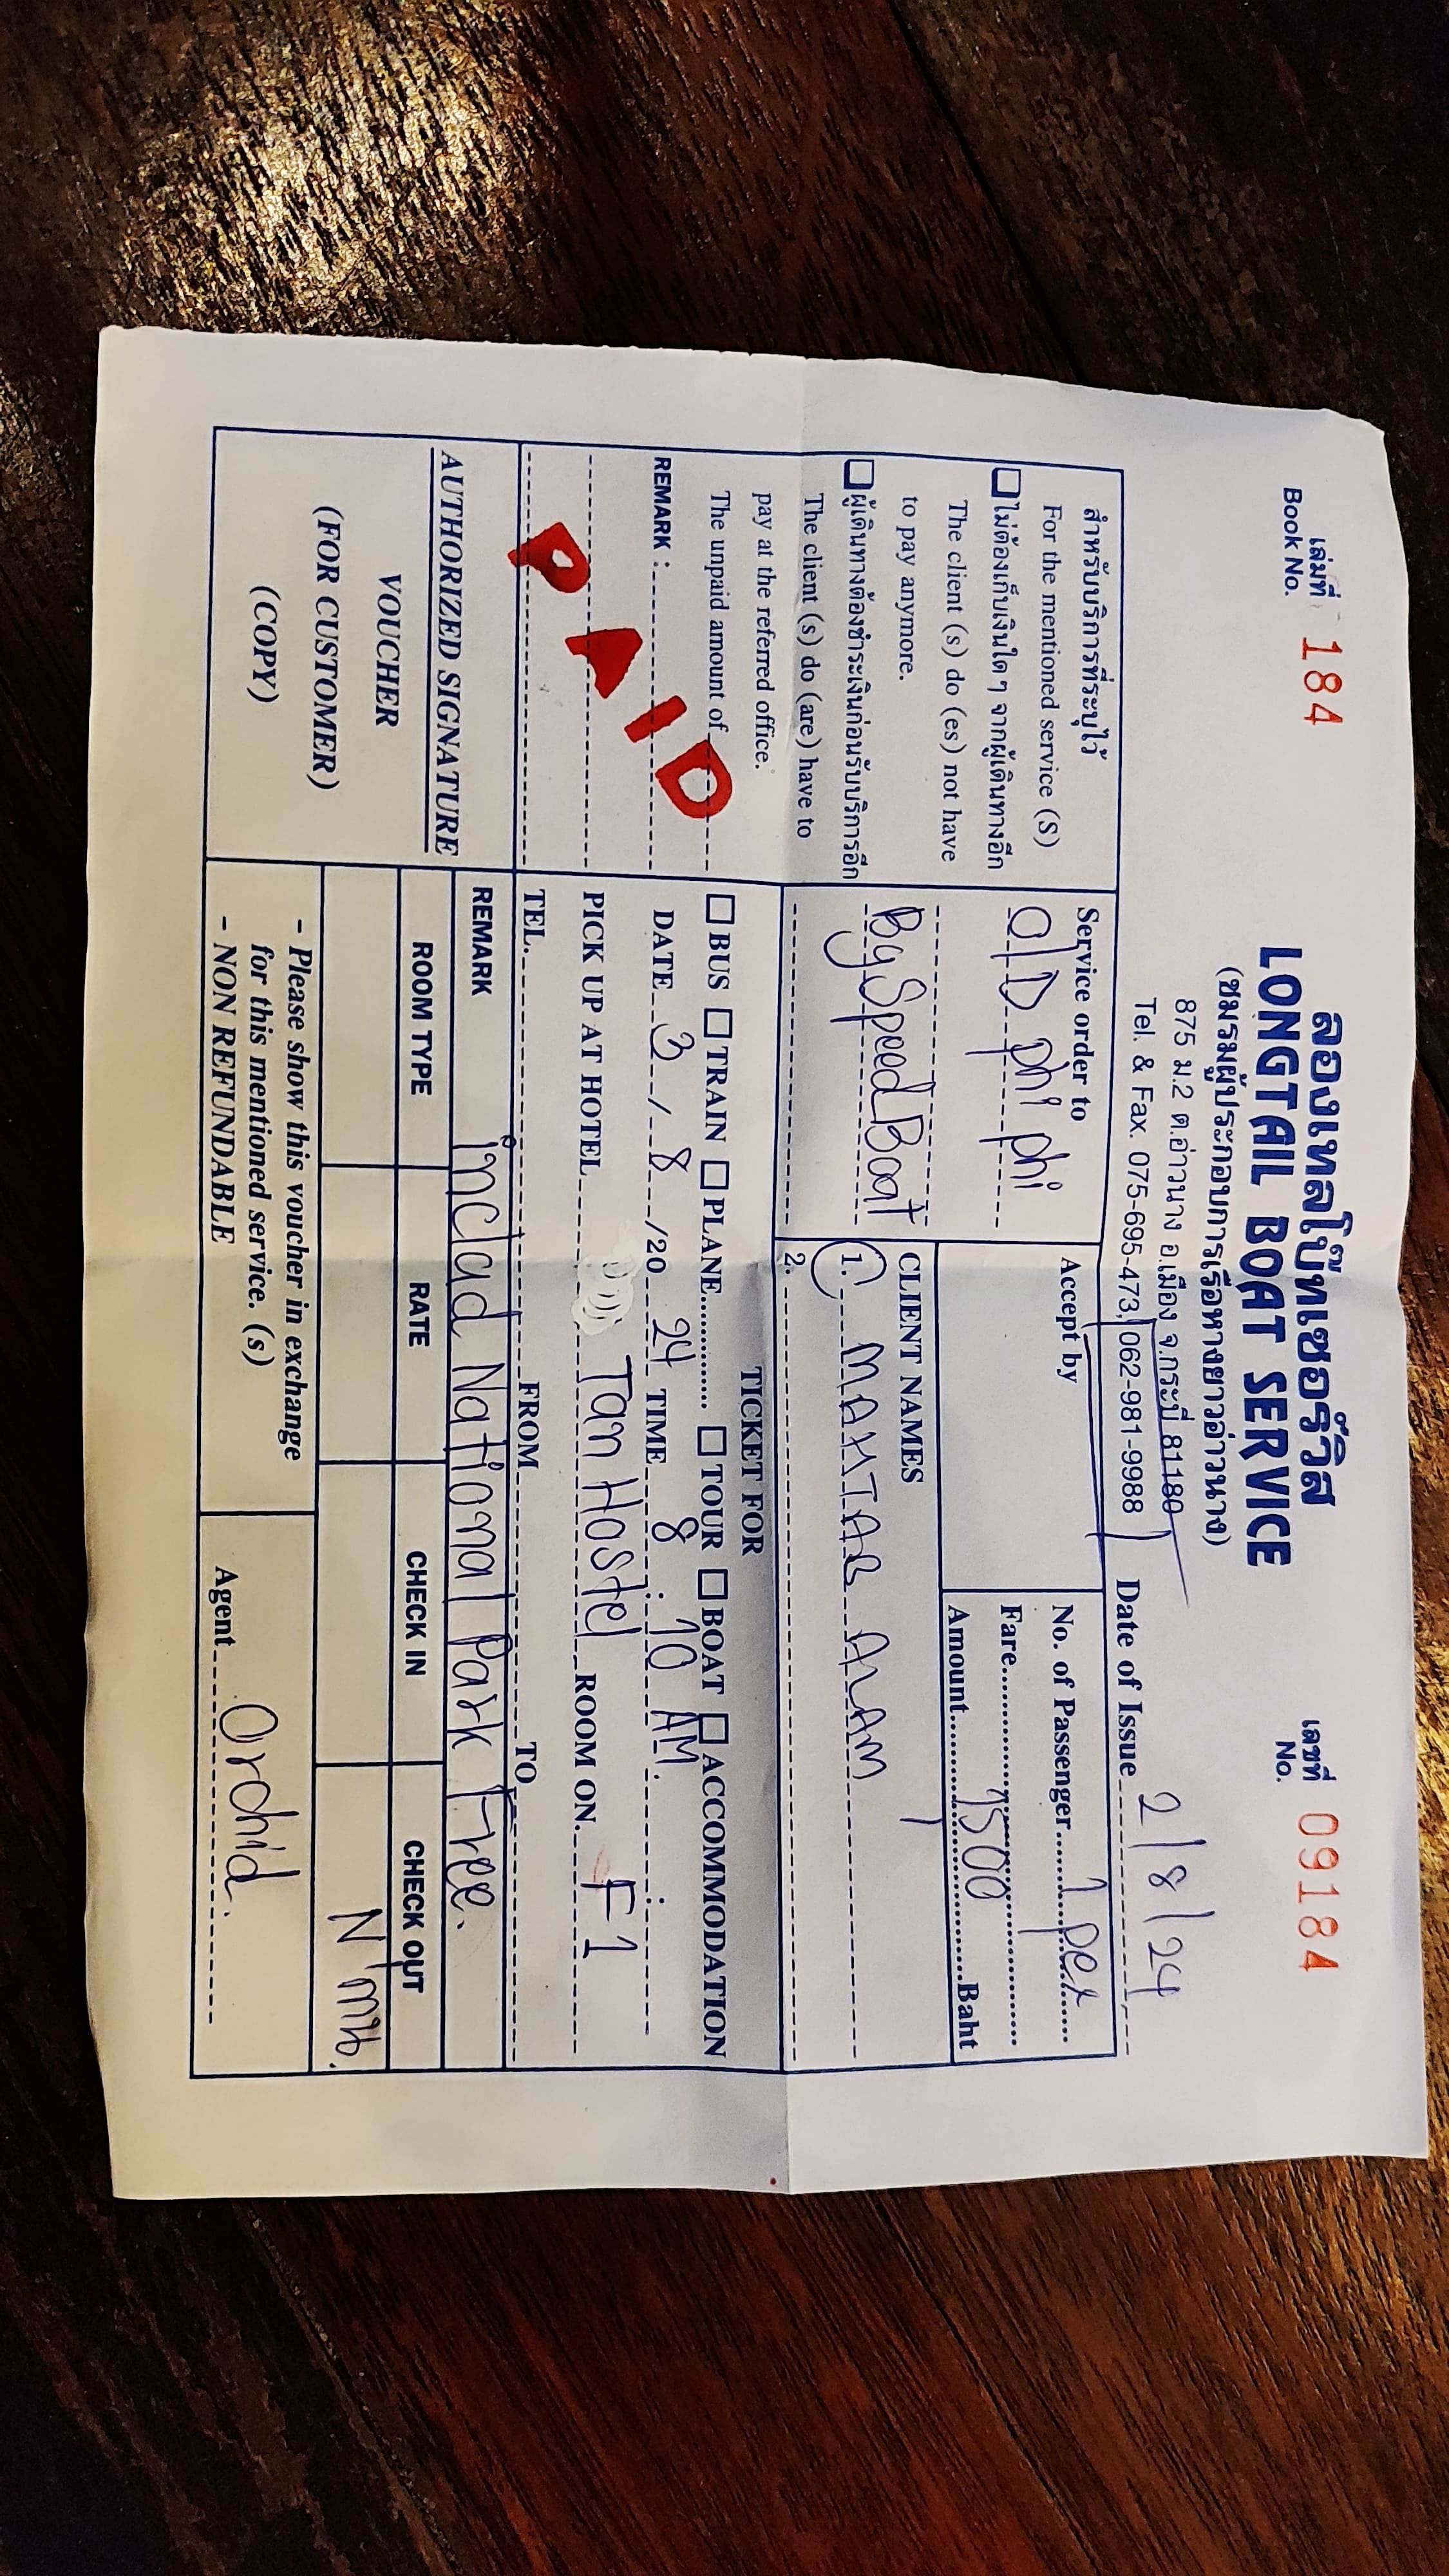 เล่มที่ 184
Book No.
เลขที่ 09184
No.
ลองเทลโบ๊ทเซอร์วิส
LONGTAIL BOAT SERVICE
(ชมรมผู้ประกอบการเรือหางยาวอ่าวนาง)
875 ม.2 ต.อ่าวนาง อ.เมือง จ.กระบี่ 81180
Tel. & Fax. 075-695-473, 062-981-9988
Date of Issue 2/8/24
สำหรับบริการที่ระบุไว้
For the mentioned service (S)
ไม่ต้องเก็บเงินใด ๆ จากผู้เดินทางอีก
The client (s) do (es) not have
to pay anymore.
ผู้เดินทางต้องชำระเงินก่อนรับบริการอีก
The client (s) do (are) have to
pay at the referred office.
The unpaid amount of
REMARK :
PAID
AUTHORIZED SIGNATURE
VOUCHER
(FOR CUSTOMER)
(COPY)
Service order to
O/D phi phi
By Speed Boat
Accept by
No. of Passenger 1 per
Fare
Amount 1500 Baht
CLIENT NAMES
1. MAHTAB ALAM
2.
TICKET FOR
BUS TRAIN PLANE TOUR BOAT ACCOMMODATION
DATE 3 / 8 /20 24 TIME 8 : 10 AM.
PICK UP AT HOTEL Tan Hostel ROOM ON. F1
TEL. FROM TO
REMARK includ National Park Free.
ROOM TYPE RATE CHECK IN CHECK OUT
- Please show this voucher in exchange
for this mentioned service. (s)
- NON REFUNDABLE
Agent Orchid.